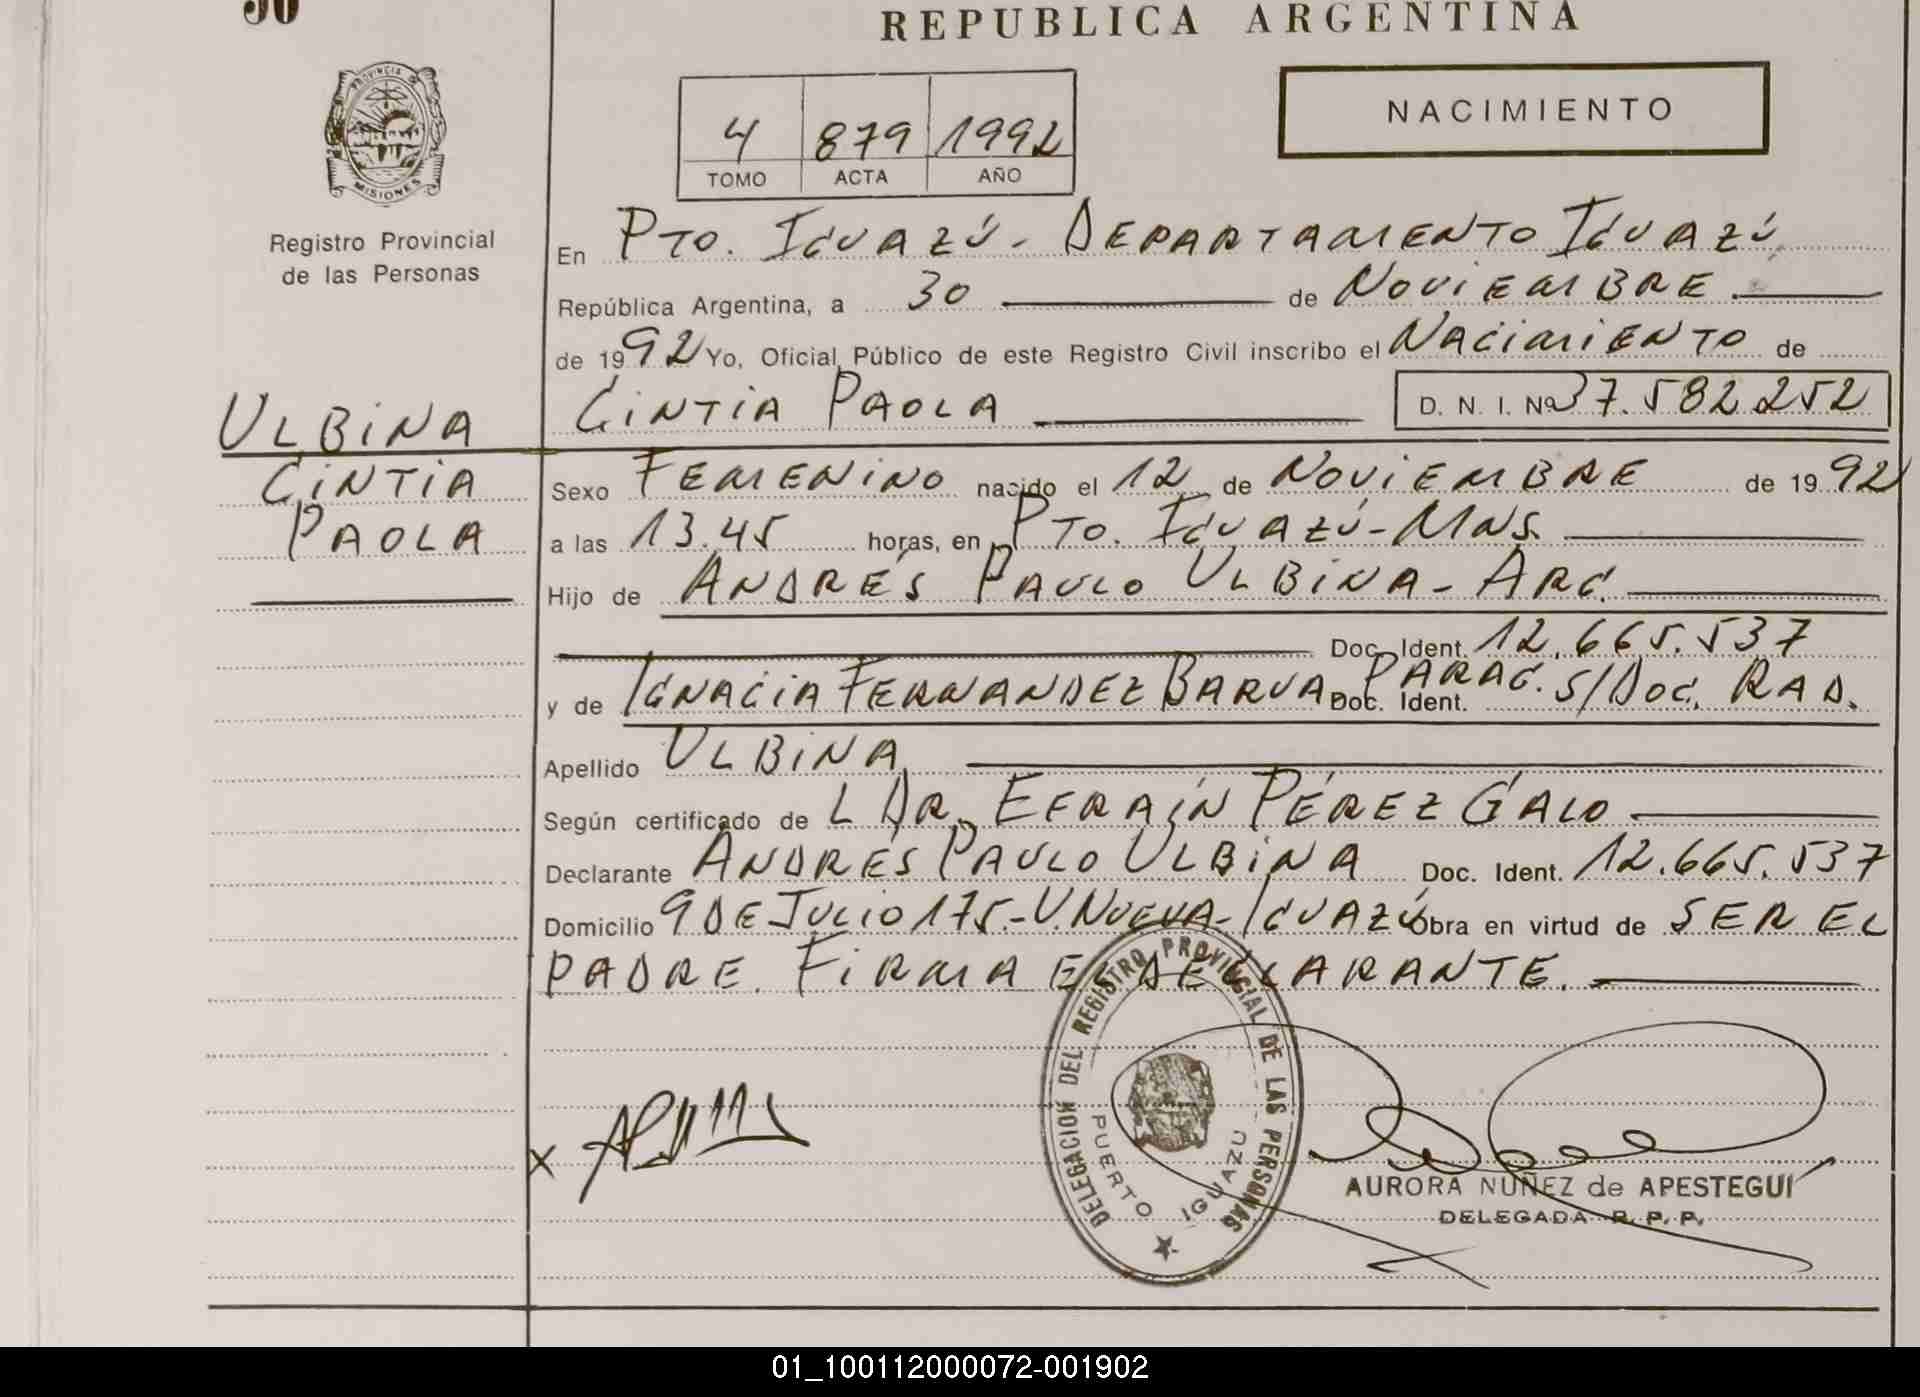 REPUBLICA ARGENTINA
PROVINCIA DE
MISIONES
Registro Provincial
de las Personas
4 879 1992
TOMO ACTA AÑO
NACIMIENTO
En PTO. IGUAZÚ - DEPARTAMENTO IGUAZÚ
República Argentina, a 30 de NOVIEMBRE
de 1992 Yo, Oficial Público de este Registro Civil inscribo el NACIMIENTO de
CINTIA PAOLA D. N. I. Nº 37.582.252
ULBINA
CINTIA
PAOLA
Sexo FEMENINO nacido el 12 de NOVIEMBRE de 1992
a las 13.45 horas, en PTO. IGUAZÚ - MNS.
Hijo de ANDRÉS PAULO ULBINA - ARG.
Doc. Ident. 12.665.537
y de IGNACIA FERNANDEZ BARUA PARAG. Doc. Ident. S/DOC. RAD.
Apellido ULBINA
Según certificado de L DR. EFRAÍN PÉREZ GALO
Declarante ANDRÉS PAULO ULBINA Doc. Ident. 12.665.537
Domicilio 9 DE JULIO 175 - V. NUEVA - IGUAZÚ Obra en virtud de SER EL
PADRE. FIRMA EL DECLARANTE.
DELEGACION DEL REGISTRO PROVINCIAL DE LAS PERSONAS
PUERTO IGUAZU
X
AURORA NUÑEZ de APESTEGUI
DELEGADA R. P. P.
01_100112000072-001902